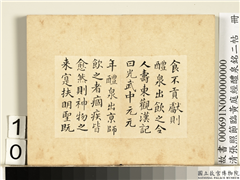 食不貢獻則
醴泉出飲之令
人壽東觀漢記
曰光武中元元
年醴泉出京師
飲之者痼疾皆
愈然則神物之
來寔扶明聖既
故書000691N000000000
清張照節臨黃庭經醴泉銘二帖 冊
國立故宮博物院
10